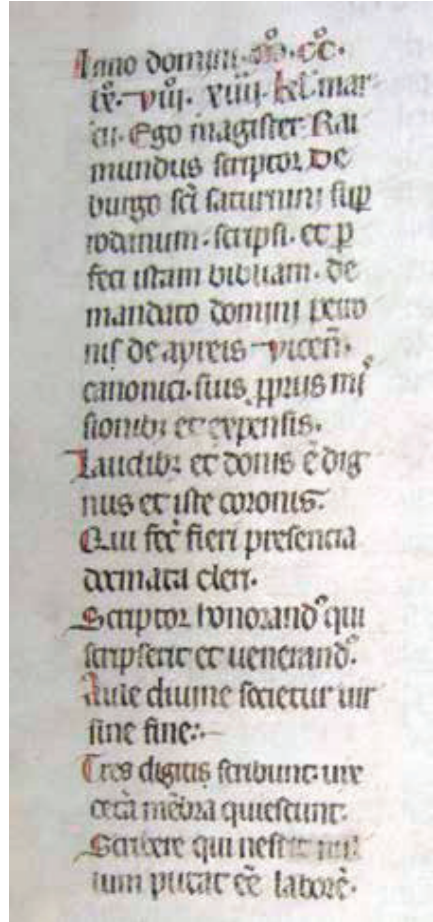 Anno domini. Mº. CCº.
lxº. viiiº. xiiii kl'. mar
cii. Ego magister Rai
mundus scriptor de
burgo scī saturnini sup
rodanum. scripsi. et p
feci istam bibliam. de
mandato domini petro
nis de ayreis vicen̄.
canonici. suis ꝓpriis mi
sionibꝫ et expensis.
Laudibꝫ et donis ē dig
nus et iste coronis.
Qui fec̄ fieri presencia
dogmata cleri.
Scriptor honorandꝰ qui
scripserit et uenerandꝰ.
Aule diuine societur uir
sine fine:~
Tres digitis scribunt. uix
cetā mēbra quiescunt.
Scribere qui nescit nul
lum putat eē laborē.